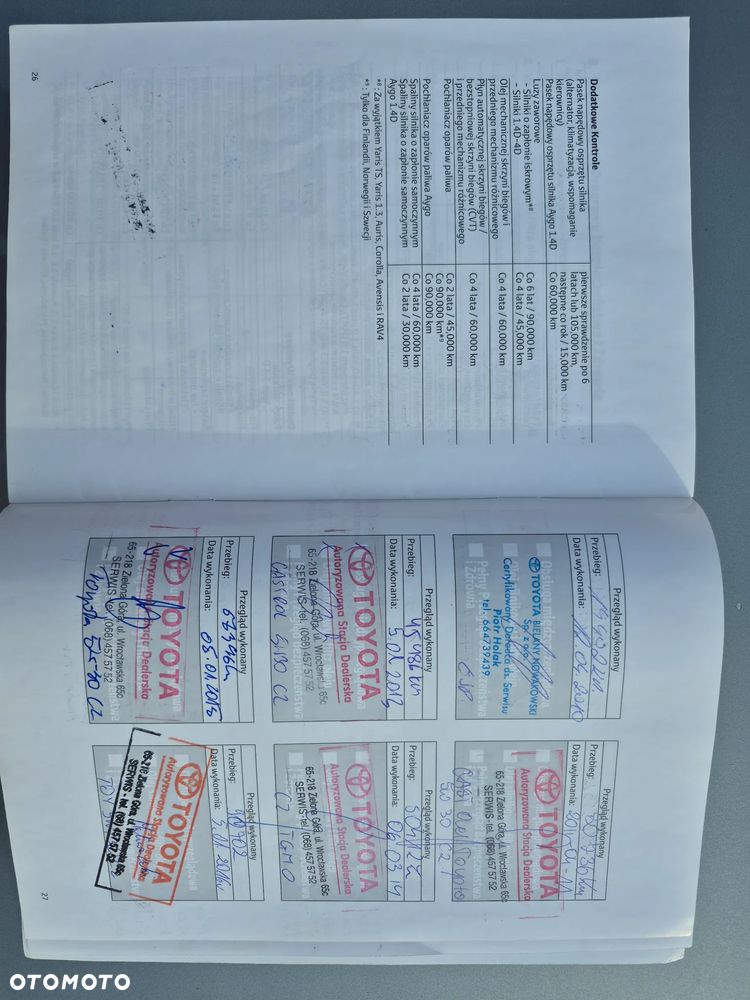 Dodatkowe Kontrole
Pasek napędowy osprzętu silnika
(alternator, klimatyzacja, wspomaganie
kierownicy)
pierwsze sprawdzenie po 6
latach lub 105,000 km,
następne co rok / 15,000 km
Pasek napędowy osprzętu silnika Aygo 1.4D
Co 60,000 km
Luzy zaworowe
- Silniki o zapłonie iskrowym*⁸
Co 6 lat / 90,000 km
- Silniki 1.4D-4D
Co 4 lata / 45,000 km
Olej mechanicznej skrzyni biegów i
przedniego mechanizmu różnicowego
Co 4 lata / 60,000 km
Płyn automatycznej skrzyni biegów /
bezstopniowej skrzyni biegów (CVT)
i przedniego mechanizmu różnicowego
Co 4 lata / 60,000 km
Pochłaniacz oparów paliwa
Co 2 lata / 45,000 km
Co 90,000 km*⁹
Pochłaniacz oparów paliwa Aygo
Co 90,000 km
Spaliny silnika o zapłonie samoczynnym
Co 4 lata / 60,000 km
Spaliny silnika o zapłonie samoczynnym
Aygo 1.4D
Co 2 lata / 30,000 km
*⁸ : Za wyjątkiem Yaris TS, Yaris 1.3, Auris, Corolla, Avensis i RAV4
*⁹ : Tylko dla Finlandii, Norwegii i Szwecji
26
Przegląd wykonany
Przebieg:
Data wykonania:
TOYOTA BIELANY NOWAKOWSKI
Sp. z o.o.
Certyfikowany Doradca ds. Serwisu
Piotr Holak
tel. 664739439
Przegląd wykonany
Przebieg: 20736 km
Data wykonania:
TOYOTA
Autoryzowana Stacja Dealerska
65-218 Zielona Góra, ul. Wrocławska 65c
SERWIS tel. (068) 457 57 52
Przegląd wykonany
Przebieg: 45486 km
Data wykonania: 5.01.2013
TOYOTA
Autoryzowana Stacja Dealerska
65-218 Zielona Góra, ul. Wrocławska 65c
SERWIS tel. (068) 457 57 52
CASTROL 5W30 CZ
Przegląd wykonany
Przebieg:
Data wykonania: 06 03 14
TOYOTA
Autoryzowana Stacja Dealerska
65-218 Zielona Góra, ul. Wrocławska 65c
SERWIS tel. (068) 457 57 52
CZ TGMO
Przegląd wykonany
Przebieg: 67396km
Data wykonania: 05.01.2015
TOYOTA
Autoryzowana Stacja Dealerska
65-218 Zielona Góra, ul. Wrocławska 65c
SERWIS tel. (068) 457 57 52
Toyota 5w-30 CZ
Przegląd wykonany
Przebieg:
Data wykonania:
TOYOTA
Autoryzowana Stacja Dealerska
65-218 Zielona Góra, ul. Wrocławska 65c
SERWIS - tel. (068) 457 57 52
27
OTOMOTO